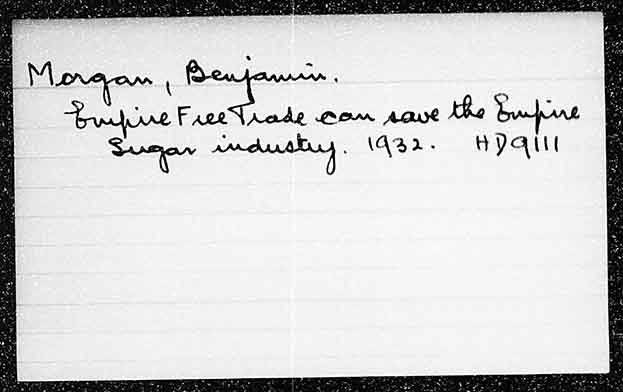 Morgan, Benjamin.
Empire Free Trade can save the Empire
Sugar industry. 1932. HD9111